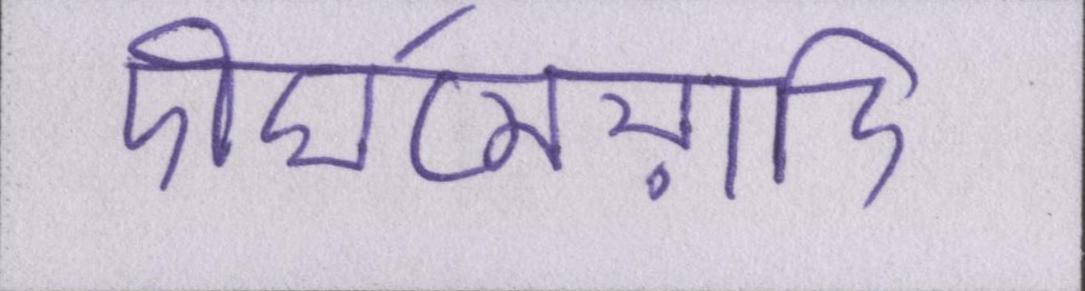 দীর্ঘমেয়াদি